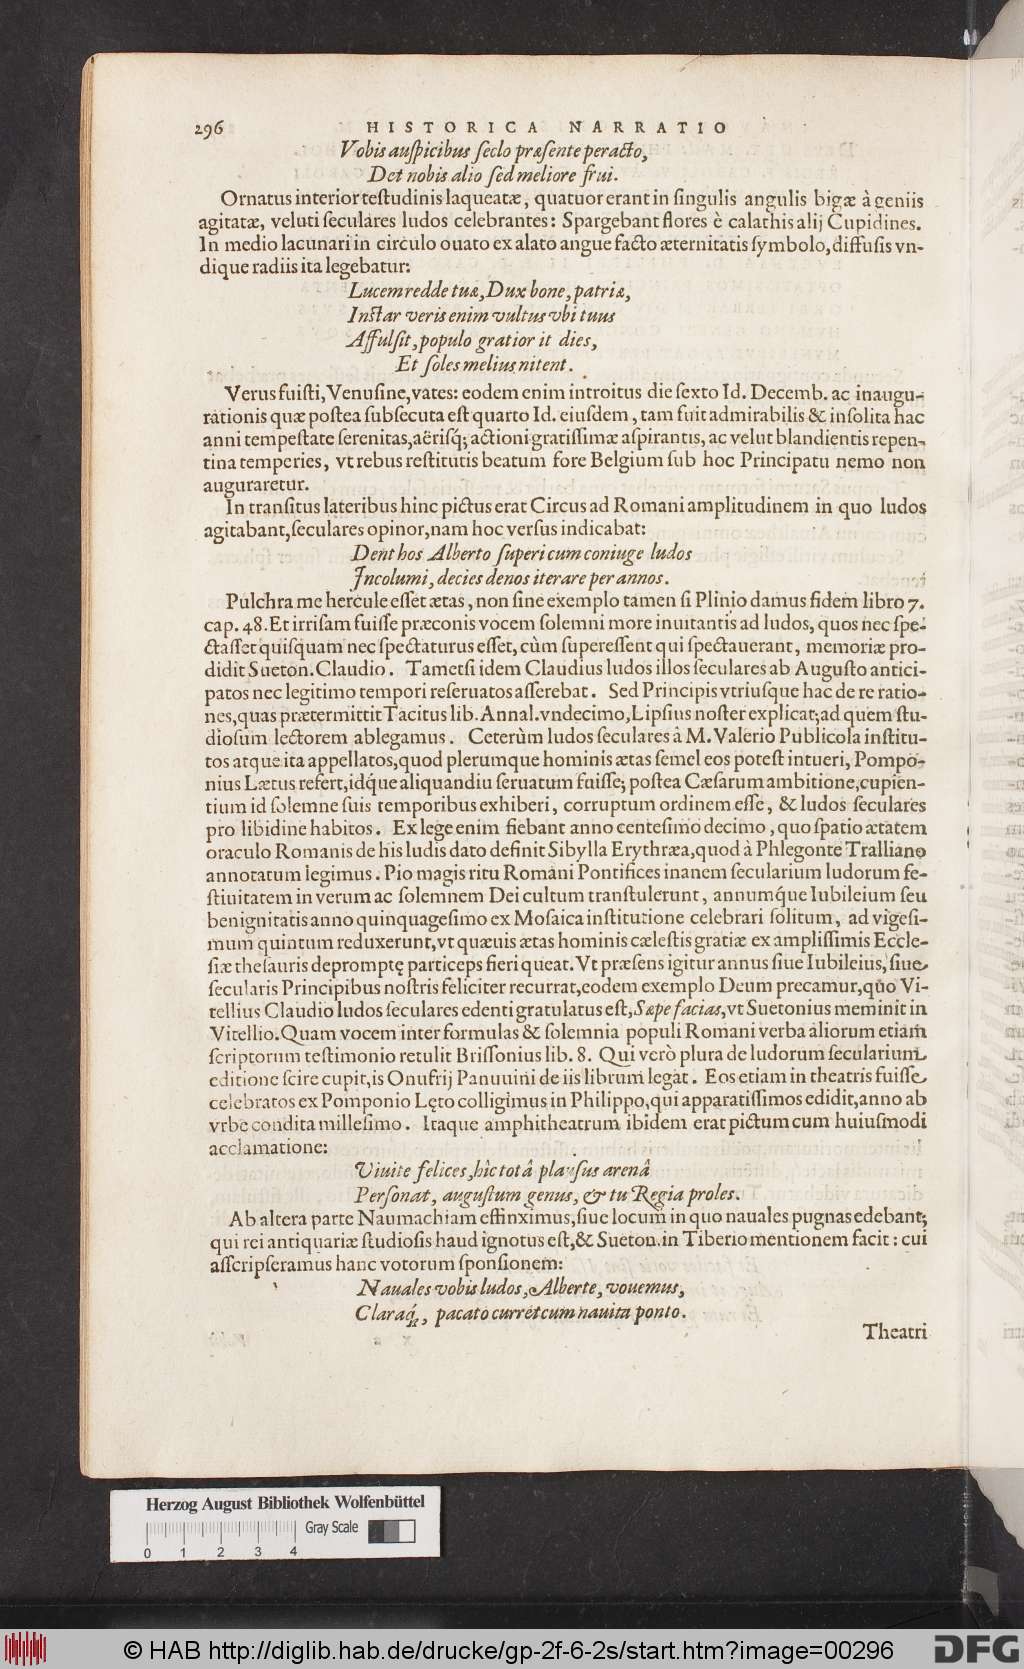 296 HISTORICA NARRATIO
Vobis auſpicibus ſeclo præſente peracto,
Det nobis alio ſed meliore frui.
Ornatus interior teſtudinis laqueatæ, quatuor erant in ſingulis angulis bigæ à geniis
agitatæ, veluti ſeculares ludos celebrantes: Spargebant flores è calathis alij Cupidines.
In medio lacunari in circulo ouato ex alato angue facto æternitatis ſymbolo, diffuſis vn-
dique radiis ita legebatur:
Lucem redde tuæ, Dux bone, patriæ,
Inſtar veris enim vultus vbi tuus
Affulſit, populo gratior it dies,
Et ſoles melius nitent.
Verus fuiſti, Venuſine, vates: eodem enim introitus die ſexto Id. Decemb. ac inaugu-
rationis quæ poſtea ſubſecuta eſt quarto Id. eiuſdem, tam fuit admirabilis & inſolita hac
anni tempeſtate ſerenitas, aëriſq́; actioni gratiſſimæ aſpirantis, ac velut blandientis repen-
tina temperies, vt rebus reſtitutis beatum fore Belgium ſub hoc Principatu nemo non
auguraretur.
In tranſitus lateribus hinc pictus erat Circus ad Romani amplitudinem in quo ludos
agitabant, ſeculares opinor, nam hoc verſus indicabat:
Dent hos Alberto ſuperi cum coniuge ludos
Incolumi, decies denos iterare per annos.
Pulchra me hercule eſſet ætas, non ſine exemplo tamen ſi Plinio damus fidem libro 7.
cap. 48. Et irriſam fuiſſe præconis vocem ſolemni more inuitantis ad ludos, quos nec ſpe-
ctaſſet quiſquam nec ſpectaturus eſſet, cùm ſupereſſent qui ſpectauerant, memoriæ pro-
didit Sueton. Claudio. Tametſi idem Claudius ludos illos ſeculares ab Auguſto antici-
patos nec legitimo tempori reſeruatos aſſerebat. Sed Principis vtriuſque hac de re ratio-
nes, quas prætermittit Tacitus lib. Annal. vndecimo, Lipſius noſter explicat; ad quem ſtu-
dioſum lectorem ablegamus. Ceterùm ludos ſeculares à M. Valerio Publicola inſtitu-
tos atque ita appellatos, quod plerumque hominis ætas ſemel eos poteſt intueri, Pompo-
nius Lætus refert, idq́ue aliquandiu ſeruatum fuiſſe; poſtea Cæſarum ambitione, cupien-
tium id ſolemne ſuis temporibus exhiberi, corruptum ordinem eſſe, & ludos ſeculares
pro libidine habitos. Ex lege enim fiebant anno centeſimo decimo, quo ſpatio ætatem
oraculo Romanis de his ludis dato definit Sibylla Erythræa, quod à Phlegonte Tralliano
annotatum legimus. Pio magis ritu Romani Pontifices inanem ſecularium ludorum fe-
ſtiuitatem in verum ac ſolemnem Dei cultum tranſtulerunt, annumq́ue Iubileium ſeu
benignitatis anno quinquageſimo ex Moſaica inſtitutione celebrari ſolitum, ad vigeſi-
mum quintum reduxerunt, vt quæuis ætas hominis cæleſtis gratiæ ex ampliſſimis Eccle-
ſiæ theſauris depromptę particeps fieri queat. Vt præſens igitur annus ſiue Iubileius, ſiue
ſecularis Principibus noſtris feliciter recurrat, eodem exemplo Deum precamur, quo Vi-
tellius Claudio ludos ſeculares edenti gratulatus eſt, Sæpe facias, vt Suetonius meminit in
Vitellio. Quam vocem inter formulas & ſolemnia populi Romani verba aliorum etiam
ſcriptorum teſtimonio retulit Briſſonius lib. 8. Qui verò plura de ludorum ſecularium
editione ſcire cupit, is Onufrij Panuuini de iis librum legat. Eos etiam in theatris fuiſſe
celebratos ex Pomponio Lęto colligimus in Philippo, qui apparatiſſimos edidit, anno ab
vrbe condita milleſimo. Itaque amphitheatrum ibidem erat pictum cum huiuſmodi
acclamatione:
Viuite felices, hîc totâ plauſus arenâ
Perſonat, auguſtum genus, & tu Regia proles.
Ab altera parte Naumachiam effinximus, ſiue locum in quo nauales pugnas edebant;
qui rei antiquariæ ſtudioſis haud ignotus eſt, & Sueton. in Tiberio mentionem facit: cui
aſſcripſeramus hanc votorum ſponſionem:
Nauales vobis ludos, Alberte, vouemus,
Claraq́;, pacato curret cum nauita ponto.
Theatri
Herzog August Bibliothek Wolfenbüttel
Gray Scale
0 1 2 3 4
© HAB http://diglib.hab.de/drucke/gp-2f-6-2s/start.htm?image=00296
DFG